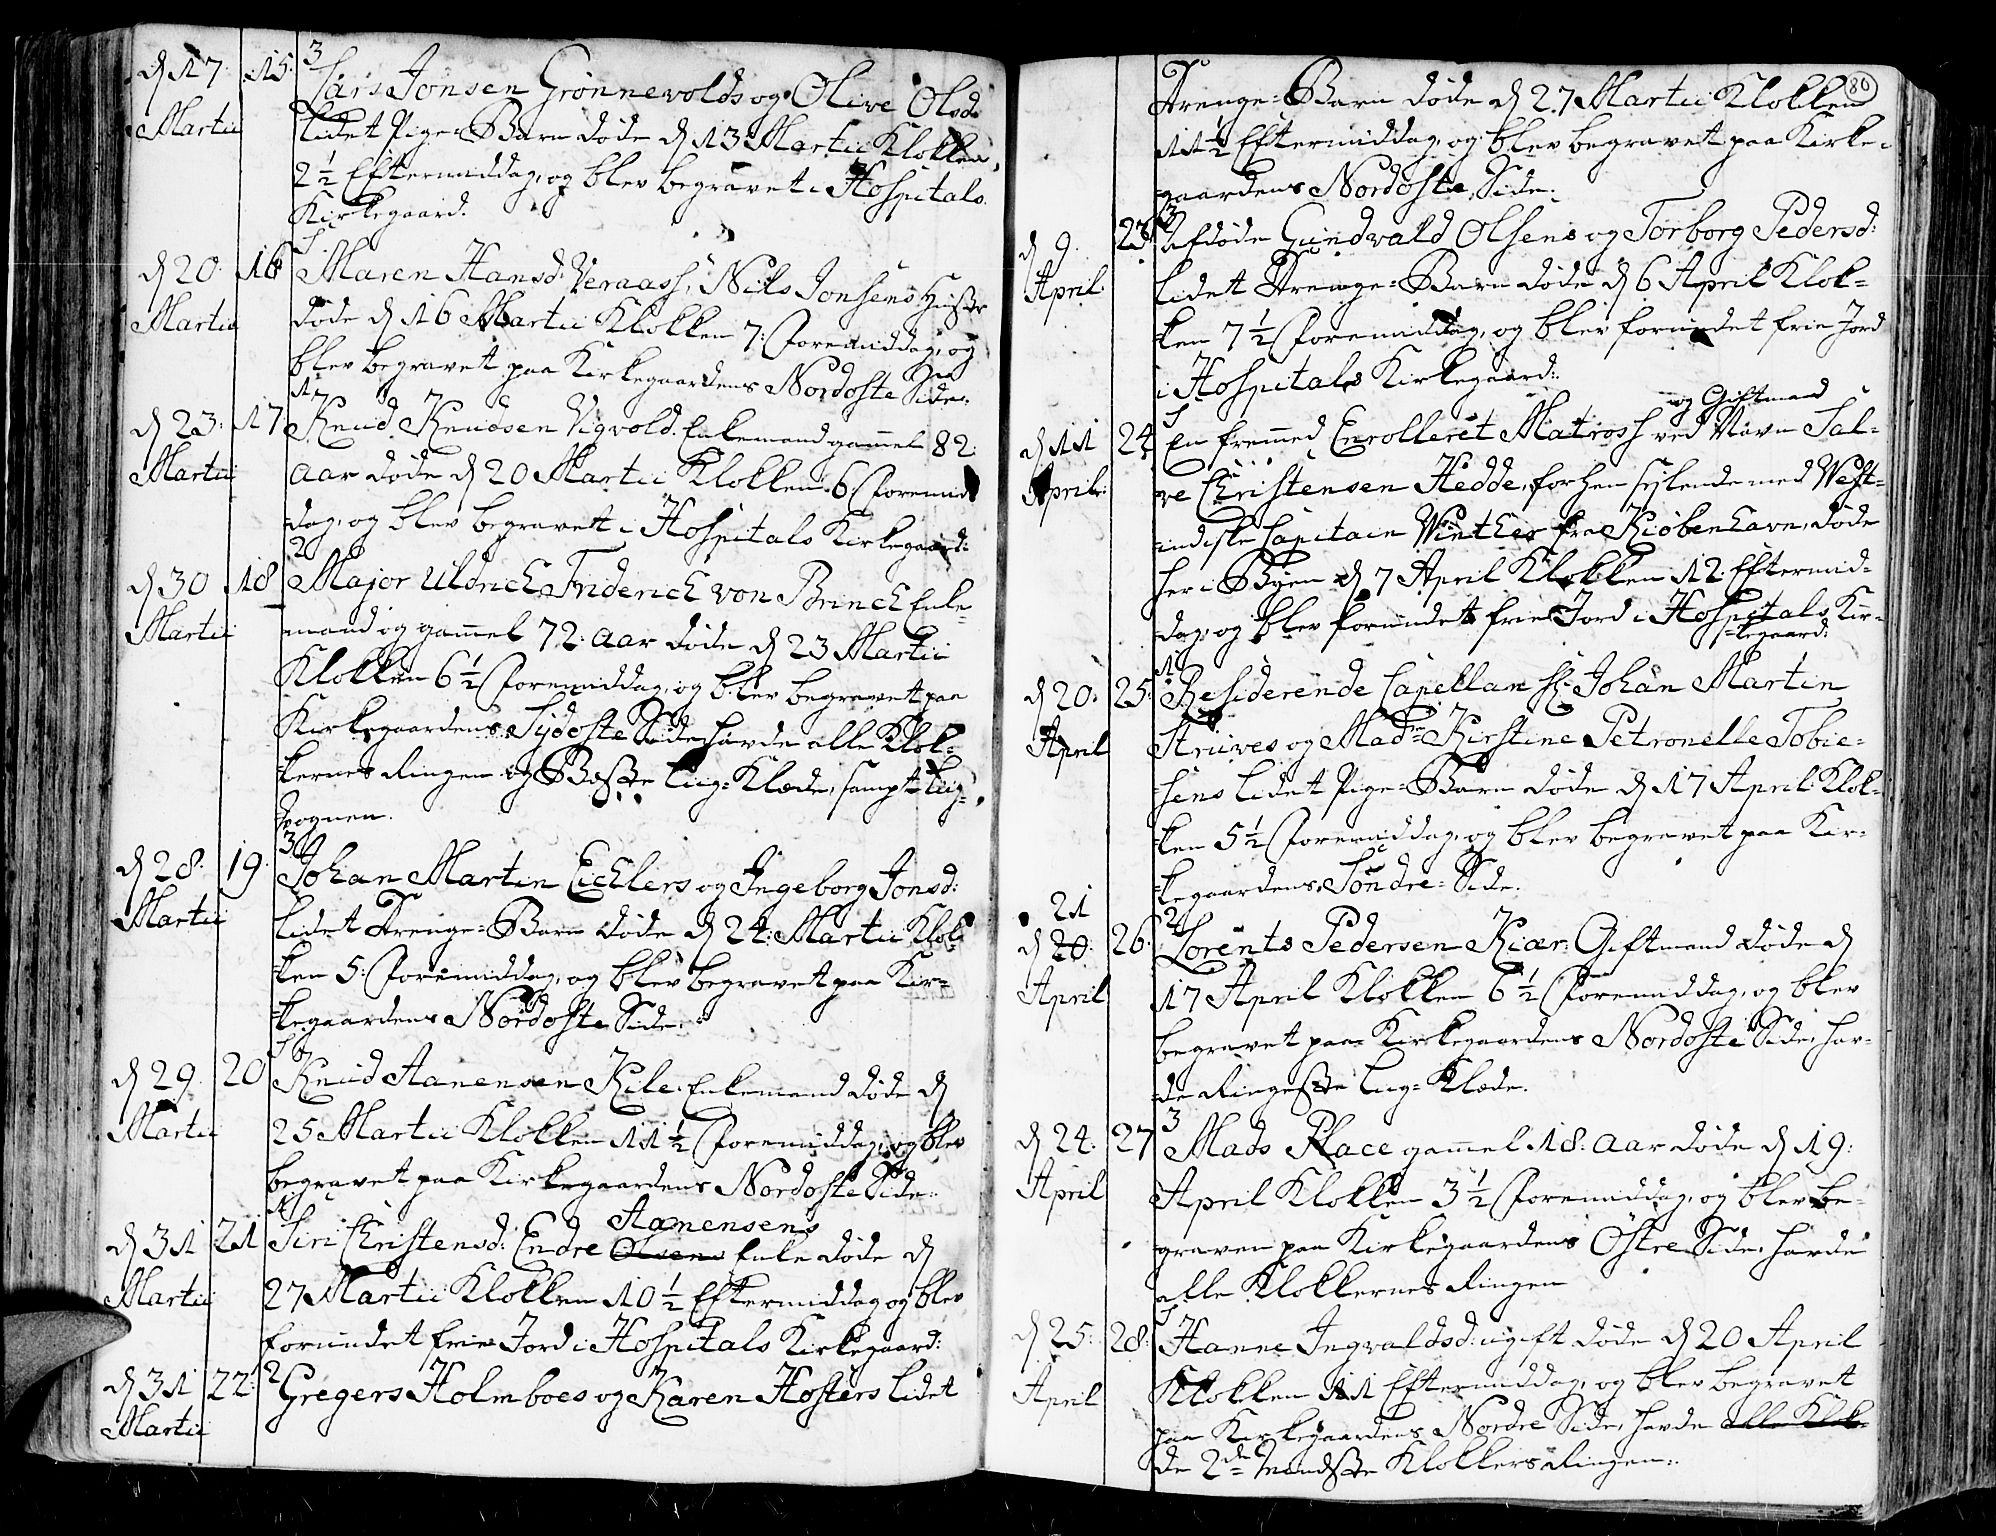 d 17. 15. 3
Lars Jonsen Grønnevolds og Olive Olsd:
Martii lidet Pige-Barn døde d 13 Martii Klokken
2½ Eftermiddag, og blev begravet i Hospitals
Kirkegaard.
d 20. 16 Maren Hansd: Veraas, Nils Jonsens Hustr
Martii døde d 16 Martii Klokken 7. Formiddag, og
blev begravet paa Kirkegaardens Nordoste Side.
d 23. 17 Knud Knudsen Vigvold. Enkemand gammel 82.
Martii aar døde d 20 Martii Klokken 6 Formid
dag, og blev begravet i Hospitals Kirkegaard:
2
d 30 18 Major Uldrich Friderich von Brinch Enke
Martii mand og gammel 72. aar døde d 23 Martii
Klokken 6½ Formiddag, og blev begravet paa
Kirkegaardens Sydoste Side, havde alle Klok-
kernes Ringen og Beste Liig-Klæde, sampt Liig-
Vognen.
3
d 28. 19. Johan Martin Eichlers og Ingeborg Jonsd:
Martii lidet Drenge-Barn døde d 24. Martii Klok-
ken 5. Formiddag, og blev begravet paa Kir-
kegaardens Nordoste Side.
d 29. 20 Knud Aanensen Kile. Enkemand døde d
Martii 25 Martii Klokken 11½ Formiddag, og blev
begravet paa Kirkegaardens Nordoste Side.
Aanensens
d 31 21 Siri Christensd: Endre Olsens Enke døde d
Martii 27 Martii Klokken 10½ Eftermiddag og blev
forundet frie Jord i Hospitals Kirkegaard:
d 31 22. 2 Gregers Holmboes og Karen Hosters lidet
Martii
80
Drenge-Barn døde d 27 Martii Klokken
11½ Eftermiddag, og blev begravet paa Kirke-
gaardens Nordoste Side.
3
d 9. 23. Afdøde Gundvald Olsens og Torborg Pedersd:
April lidet Drenge-Barn døde d 6 April Klok-
ken 7½ Formiddag, og blev forundet frie Jord
i Hospitals Kirkegaard:
og Giftmand
d 11 24 En fremmed Enrolleret Matross ved Navn Sal-
April ve Christensen Hedde, forhen sejlende med West-
indiske Capitain Winther fra Kiøbenhavn, døde
her i Byen d 7 April Klokken 12. Eftermid-
dag, og blev forundet frie Jord i Hospitals Kir-
kegaard:
1
d 20. 25. Residerende Capellan Hr. Johan Martin
April Struves og Madme Kirstine Petronelle Tobie-
sens lidet Pige-Barn døde d 17 April Klok-
ken 5½ Formiddag, og blev begravet paa Kir-
kegaardens Søndre-Side.
21 2
d 20. 26. Lorents Pedersen Kiær. Giftmand døde d
April 17 April Klokken 6½ Formiddag, og blev
begravet paa Kirkegaardens Nordoste Side, hav-
de Ringeste Liig-Klæde.
3
d 24. 27 Mads Place gammel 18. aar døde d 19.
April April Klokken 3½ Formiddag, og blev be-
graven paa Kirkegaardens Østre Side, havde
alle Klokkernes Ringen
d 25. 28. Hanne Ingvaldsd: ugift døde d 20 April
April Klokken 11 Eftermiddag, og blev begravet
paa Kirkegaardens Nordre Side, havde alle Klok-
de 2de mindste Klokkers Ringen.